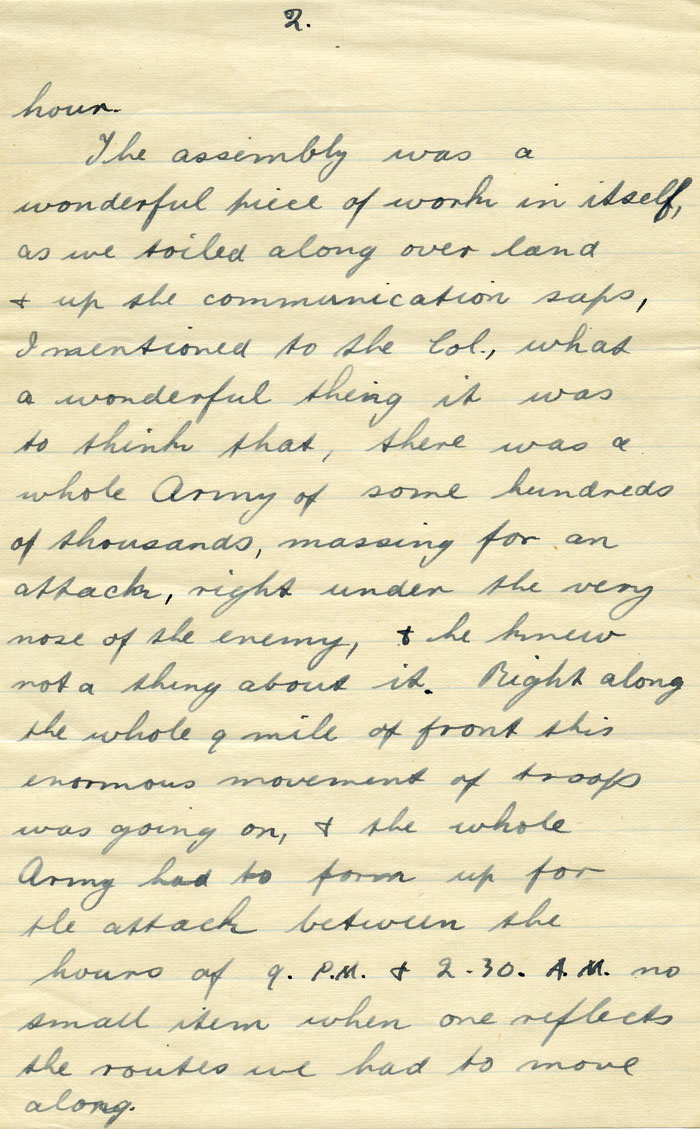 2.
hour.
The assembly was a
wonderful piece of work in itself,
as we toiled along over land
& up the communication saps,
I mentioned to the Col., what
a wonderful thing it was
to think that, there was a
whole Army of some hundreds
of thousands, massing for an
attack, right under the very
nose of the enemy, & he knew
not a thing about it. Right along
the whole 9 mile of front this
enormous movement of troops
was going on, & the whole
Army had to form up for
the attack between the
hours of 9. P.M. & 2.30. A.M. no
small item when one reflects
the routes we had to move
along.